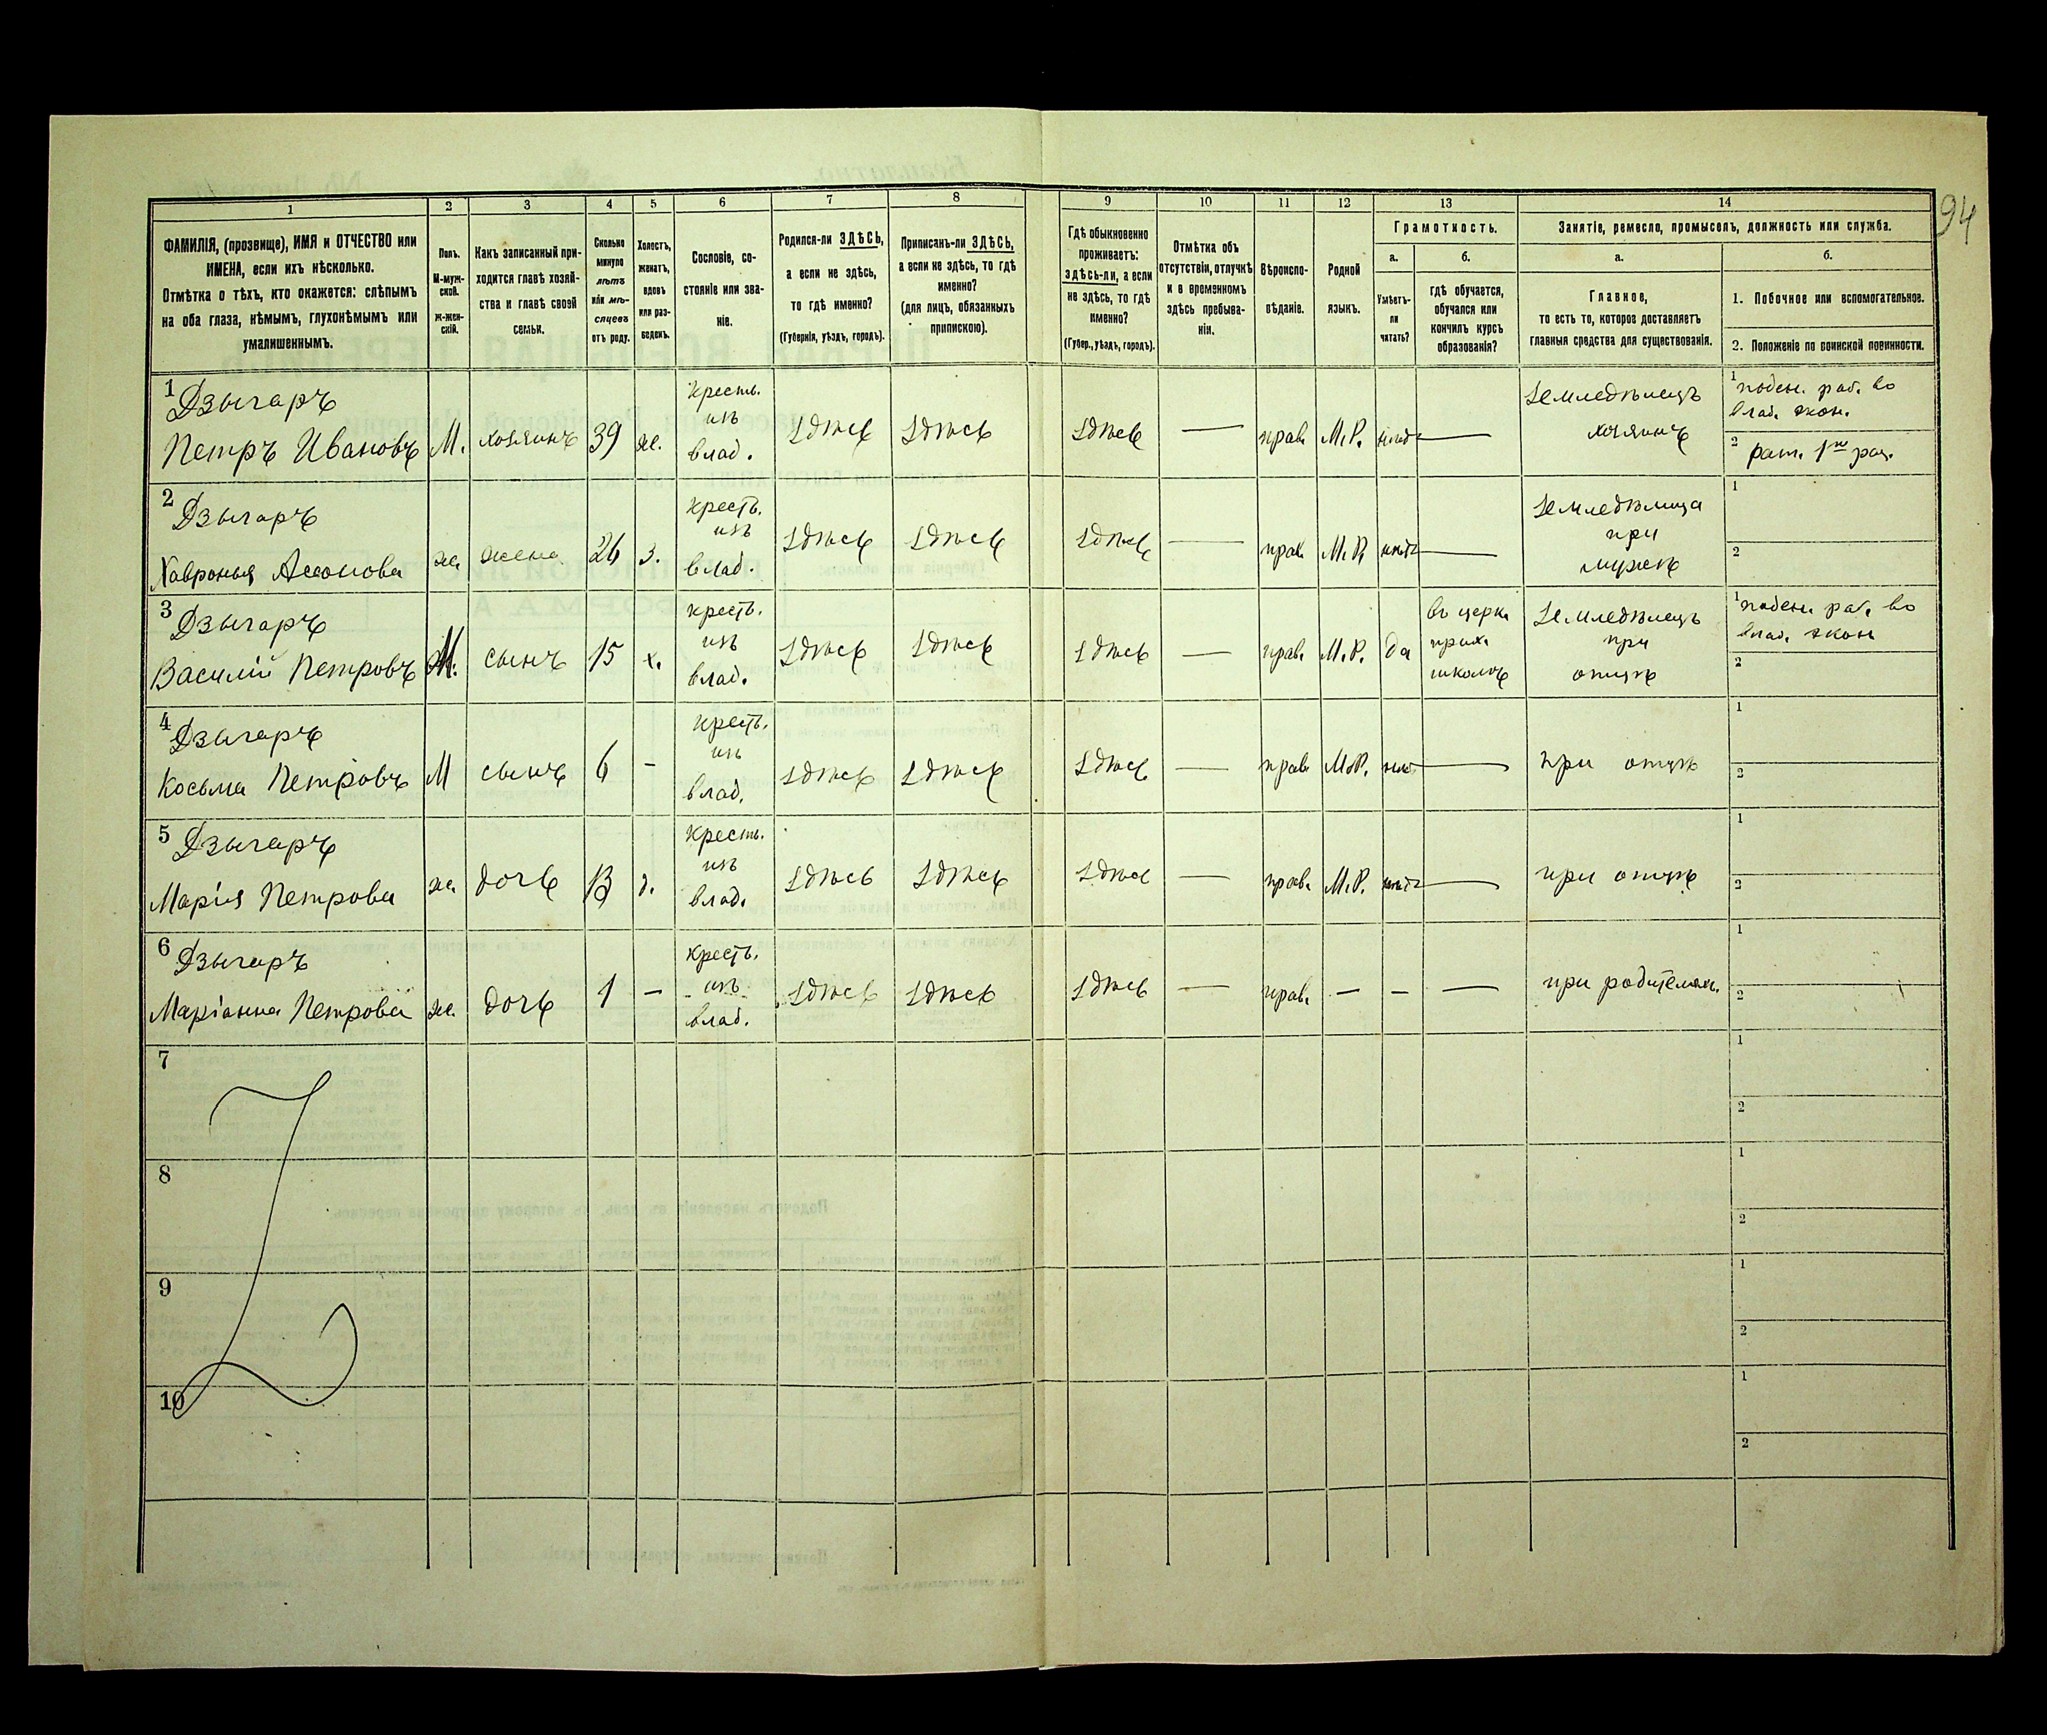 94
1 2 3 4 5 6 7 8 9 10 11 12 13 14
ФАМИЛІЯ, (прозвище), ИМЯ и ОТЧЕСТВО или
ИМЕНА, если ихъ нѣсколько.
Отмѣтка о тѣхъ, кто окажется: слѣпымъ
на оба глаза, нѣмымъ, глухонѣмымъ или
умалишеннымъ.
Полъ.
М-муж-
ской.
Ж-жен-
скій.
Какъ записанный при-
ходится главѣ хозяй-
ства и главѣ своей
семьи.
Сколько
минуло
лѣтъ
или мѣ-
сяцевъ
отъ роду.
Холостъ,
женатъ,
вдовъ
или раз-
веденъ.
Сословіе, со-
стояніе или зва-
ніе.
Родился-ли ЗДѢСЬ,
а если не здѣсь,
то гдѣ именно?
(Губернія, уѣздъ, городъ).
Приписанъ-ли ЗДѢСЬ,
а если не здѣсь, то гдѣ
именно?
(для лицъ, обязанныхъ
припискою).
Гдѣ обыкновенно
проживаетъ:
здѣсь-ли, а если
не здѣсь, то гдѣ
именно?
(Губер., уѣздъ, городъ).
Отмѣтка объ
отсутствіи, отлучкѣ
и в временномъ
здѣсь пребыва-
ніи.
Вѣроиспо-
вѣданіе.
Родной
языкъ.
Грамотность.
а.
Умѣетъ-
ли
читать?
б.
гдѣ обучается,
обучался или
кончилъ курсъ
образованія?
Занятіе, ремесло, промыселъ, должность или служба.
а.
Главное,
то есть то, которое доставляетъ
главныя средства для существованія.
б.
1. Побочное или вспомогательное.
2. Положеніе по воинской повинности.
1 Дзыгаръ
Петръ Ивановъ
М.
хозяинъ
39
ж.
крестъ.
изъ
влад.
здѣсь
здѣсь
здѣсь
—
прав.
М.Р.
нѣтъ
—
Земледѣлецъ
хозяинъ
1 поден. раб. во
влад. экон.
2 рат. 1го раз.
2 Дзыгаръ
Хавронья
ж.
жена
26
з.
крестъ.
изъ
влад.
здѣсь
здѣсь
здѣсь
—
прав.
М.Р.
нѣтъ
—
Земледѣлица
при
мужѣ
1
2
3 Дзыгаръ
Василій Петровъ
М.
сынъ
15
х.
крестъ.
изъ
влад.
здѣсь
здѣсь
здѣсь
—
прав.
М.Р.
да
въ церк.
прих.
школѣ
Земледѣлецъ
при
отцѣ
1 поден. раб. во
влад. экон.
2
4 Дзыгаръ
Косьма Петровъ
М
сынъ
6
-
крестъ.
изъ
влад.
здѣсь
здѣсь
здѣсь
—
прав.
М.Р.
нѣт.
—
при отцѣ
1
2
5 Дзыгаръ
Марія Петрова
ж.
дочь
13
д.
крестъ.
изъ
влад.
здѣсь
здѣсь
здѣсь
—
прав.
М.Р.
нѣтъ
—
при отцѣ
1
2
6 Дзыгаръ
Маріанна Петрова
ж.
дочь
1
—
крестъ.
изъ
влад.
здѣсь
здѣсь
здѣсь
—
прав.
—
—
—
при родителяхъ.
1
2
7
1
2
8
1
2
9
1
2
10
1
2